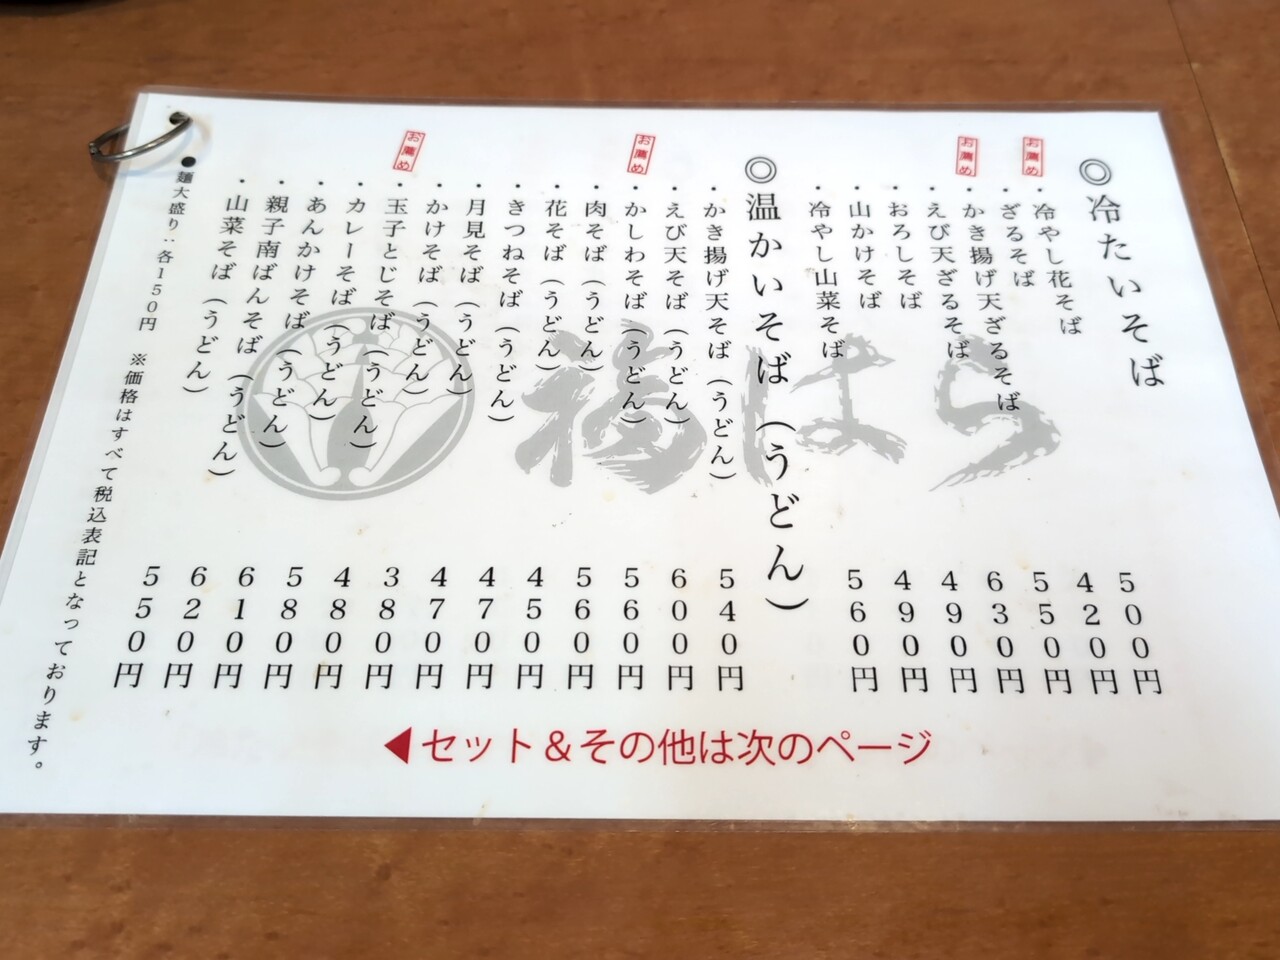 ◎冷たいそば
お薦め
・冷やし花そば 500円
・ざるそば 420円
お薦め
・かき揚げ天ざるそば 550円
・えび天ざるそば 630円
・おろしそば 490円
・山かけそば 490円
・冷やし山菜そば 560円
◎温かいそば（うどん）
・かき揚げ天そば（うどん） 540円
・えび天そば（うどん） 600円
お薦め
・かしわそば（うどん） 560円
・肉そば（うどん） 560円
・花そば（うどん） 450円
・きつねそば（うどん） 470円
・月見そば（うどん） 470円
・かけそば（うどん） 380円
お薦め
・玉子とじそば（うどん） 480円
・カレーそば（うどん） 580円
・あんかけそば（うどん） 610円
・親子南ばんそば（うどん） 620円
・山菜そば（うどん） 550円
●麺大盛り：各150円 ※価格はすべて税込表記となっております。
福はら
◀セット＆その他は次のページ